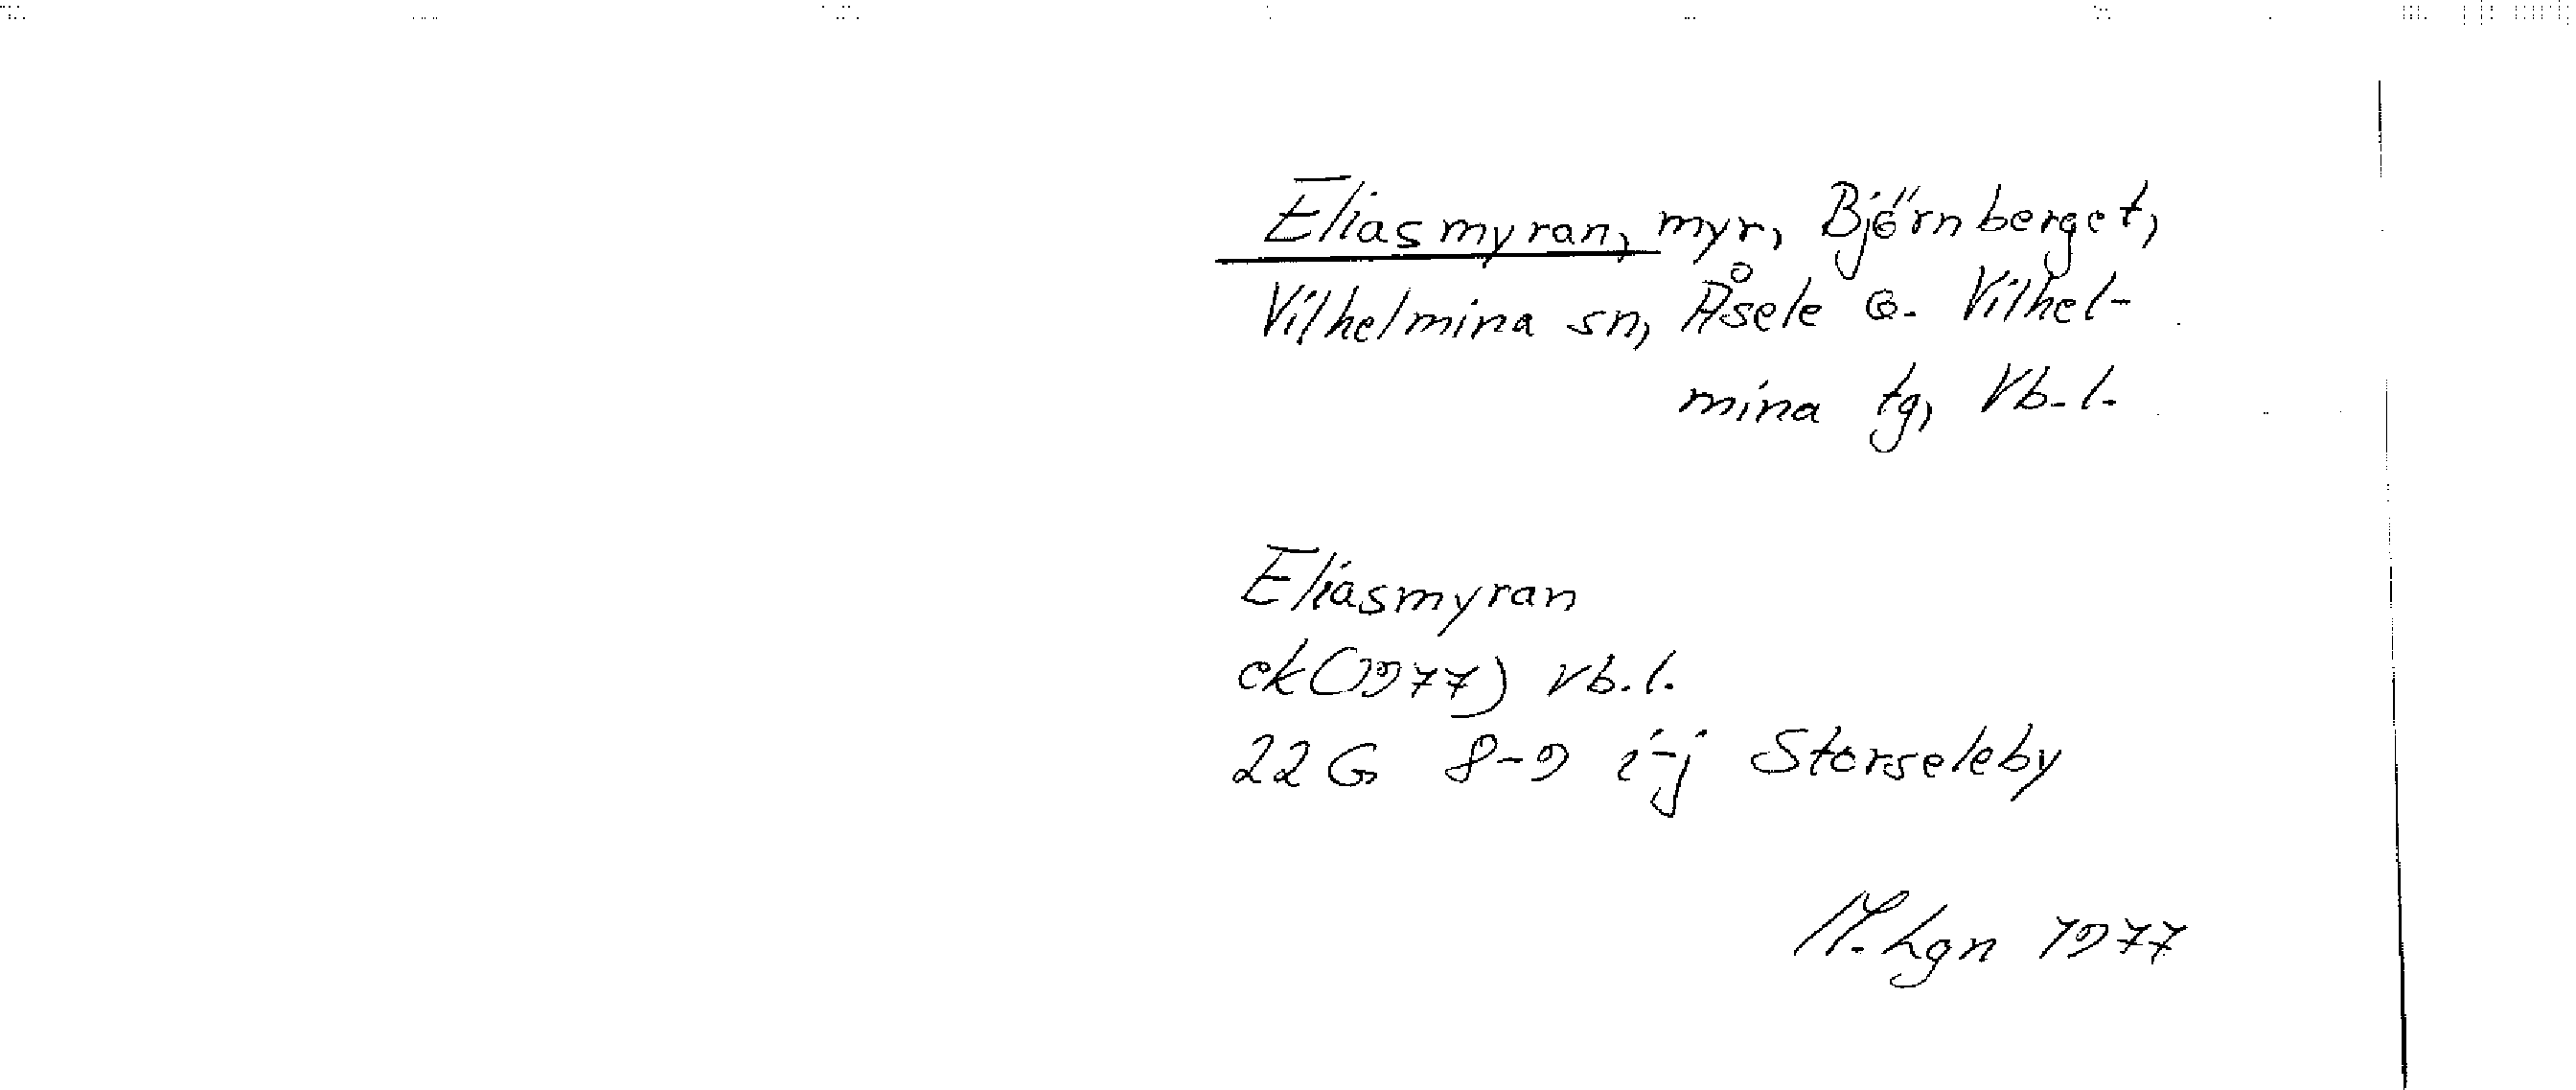 Eliasmyran, myr, Björnberget,
Vilhelmina sn, Åsele o. Vilhel-
mina tg, Vb.l.
Eliasmyran
ek(1977) Vb.l.
22G 8-9 i-j Storseleby
M.Lgn 1977